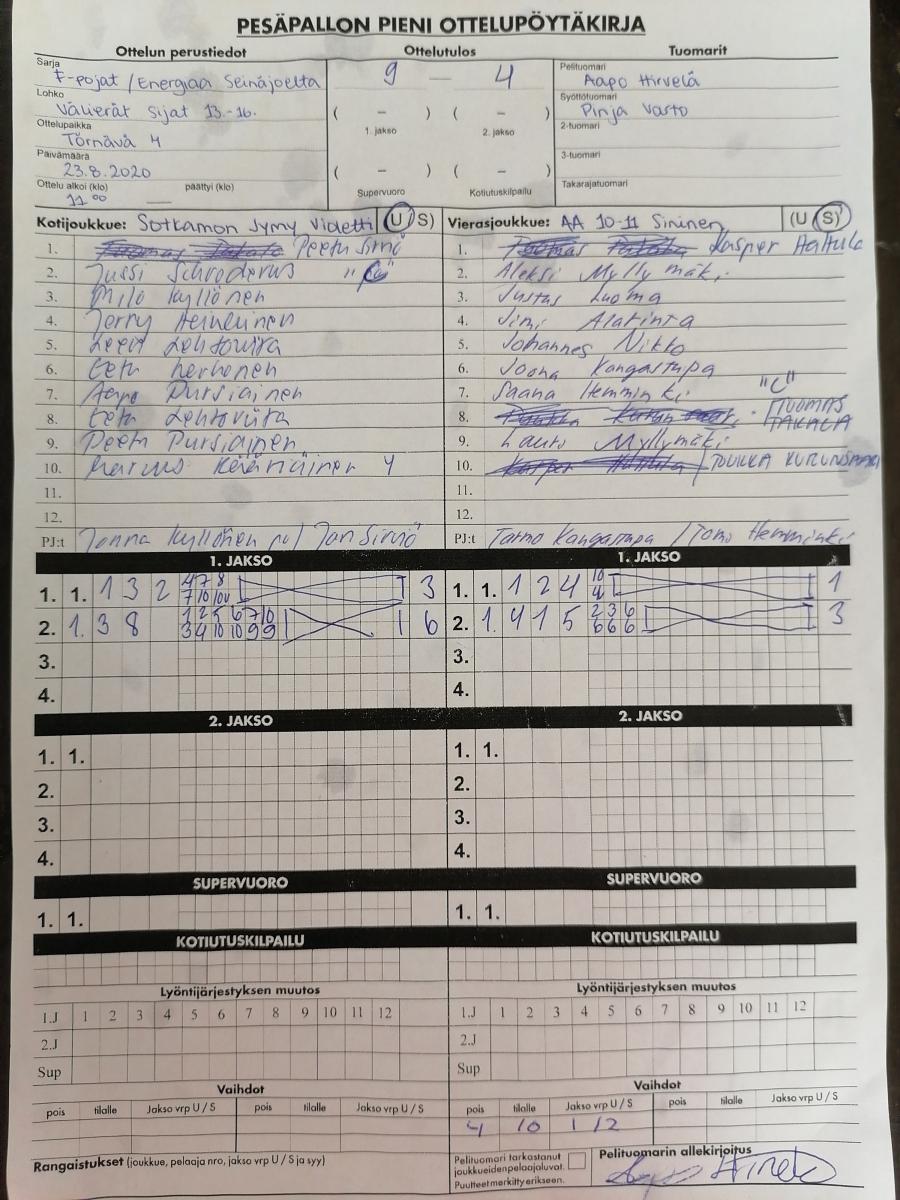 PESÄPALLON PIENI OTTELUPÖYTÄKIRJA
Ottelun perustiedot
Sarja
F-pojat / Energiaa Seinäjoelta
Lohko
Välierät sijat 13.-16.
Ottelupaikka
Törnävä 4
Päivämäärä
23.8.2020
Ottelu alkoi (klo) päättyi (klo)
11 00
Ottelutulos
9 — 4
( – ) ( – )
1. jakso 2. jakso
( – ) ( – )
Supervuoro Kotiutuskilpailu
Tuomarit
Pelituomari
Aapo Hirvelä
Syöttötuomari
Pinja Varto
2-tuomari
3-tuomari
Takarajatuomari
Kotijoukkue: Sotkamon Jymy Violetti (U/S)
1. Peetu Simo
2. Jussi Schroderus "C"
3. Milo Kyllönen
4. Jerry Heikkinen
5. Leevi Lehtovirta
6. Eetu Kerhonen
7. Aapo Pursiainen
8. Eetu Lehtovirta
9. Peetu Pursiainen
10. Marcus 4
11.
12.
PJ:t Janna Kyllönen
Vierasjoukkue: AA 10-11 Sininen (U/S)
1. Kasper Hattula
2. Aleksi Myllymäki
3. Justus Luoma
4. Jimi Alarinta
5. Johannes Nikko
6. Joona Kangastupa
7. Saana Hemminki "C"
8. TUOMAS TAKALA
9. Lauri Myllymäki
10. TUUKKA KURUNSAARI
11.
12.
PJ:t Tarmo Kangastupa / Tomi Hemminki
1. JAKSO
1. 1. 1 3 2 4 7 8 3
7 10 10
2. 1. 3 8 1 2 5 6 7 10 6
3 4 10 10 9 9
3.
4.
1. JAKSO
1. 1. 1 2 4 10 1
4
2. 1. 4 1 5 2 3 6 3
6 6 6
3.
4.
2. JAKSO
1. 1.
2.
3.
4.
2. JAKSO
1. 1.
2.
3.
4.
SUPERVUORO
1. 1.
SUPERVUORO
1. 1.
KOTIUTUSKILPAILU
KOTIUTUSKILPAILU
Lyöntijärjestyksen muutos
1.J 1 2 3 4 5 6 7 8 9 10 11 12
2.J
Sup
Lyöntijärjestyksen muutos
1.J 1 2 3 4 5 6 7 8 9 10 11 12
2.J
Sup
Vaihdot
pois tilalle Jakso vrp U / S pois tilalle Jakso vrp U / S
Vaihdot
pois tilalle Jakso vrp U / S pois tilalle Jakso vrp U / S
4 10 1 1/2
Rangaistukset (joukkue, pelaaja nro, jakso vrp U / S ja syy)
Pelituomari tarkastanut
joukkueidenpelaajaluvat.
Puutteet merkitty erikseen.
Pelituomarin allekirjoitus